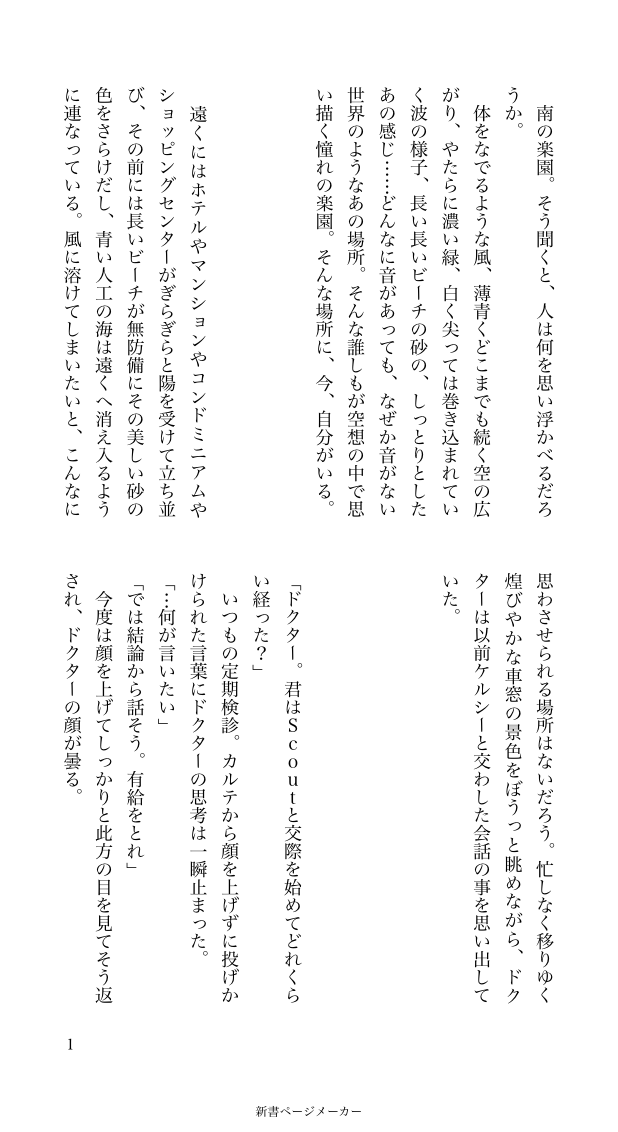 南の楽園。そう聞くと、人は何を思い浮かべるだろ
うか。
　体をなでるような風、薄青くどこまでも続く空の広
がり、やたらに濃い緑、白く尖っては巻き込まれてい
く波の様子、長い長いビーチの砂の、しっとりとした
あの感じ……どんなに音があっても、なぜか音がない
世界のようなあの場所。そんな誰しもが空想の中で思
い描く憧れの楽園。そんな場所に、今、自分がいる。
　遠くにはホテルやマンションやコンドミニアムや
ショッピングセンターがぎらぎらと陽を受けて立ち並
び、その前には長いビーチが無防備にその美しい砂の
色をさらけだし、青い人工の海は遠くへ消え入るよう
に連なっている。風に溶けてしまいたいと、こんなに
思わさせられる場所はないだろう。忙しなく移りゆく
煌びやかな車窓の景色をぼうっと眺めながら、ドク
ターは以前ケルシーと交わした会話の事を思い出して
いた。
「ドクター。君はScoutと交際を始めてどれくら
い経った？」
　いつもの定期検診。カルテから顔を上げずに投げか
けられた言葉にドクターの思考は一瞬止まった。
「…何が言いたい」
「では結論から話そう。有給をとれ」
　今度は顔を上げてしっかりと此方の目を見てそう返
され、ドクターの顔が曇る。
1
新書ページメーカー